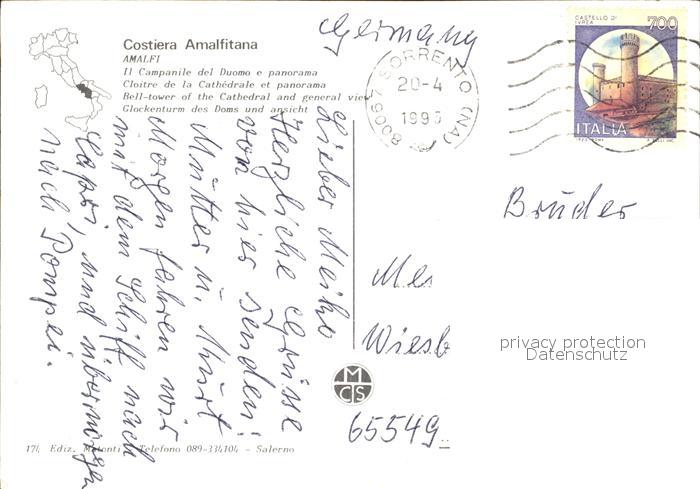 Costiera Amalfitana
AMALFI
Il Campanile del Duomo e panorama
Cloitre de la Cathédrale et panorama
Bell-tower of the Cathedral and general view
Glockenturm des Doms und ansicht
Germany
80067 SORRENTO (NA)
20-4
CASTELLO D'
IVREA
700
ITALIA
Lieber Meiko
Herzliche Grüsse
von hier senden:
Mutter u. Kurt
Morgen fahren wir
mit dem Schiff nach
Capri, und übermorgen
nach Pompei.
Bruder
Me
Wiesb
privacy protection
Datenschutz
MCS
65549
174 Ediz. Matonti Telefono 089-334104 - Salerno